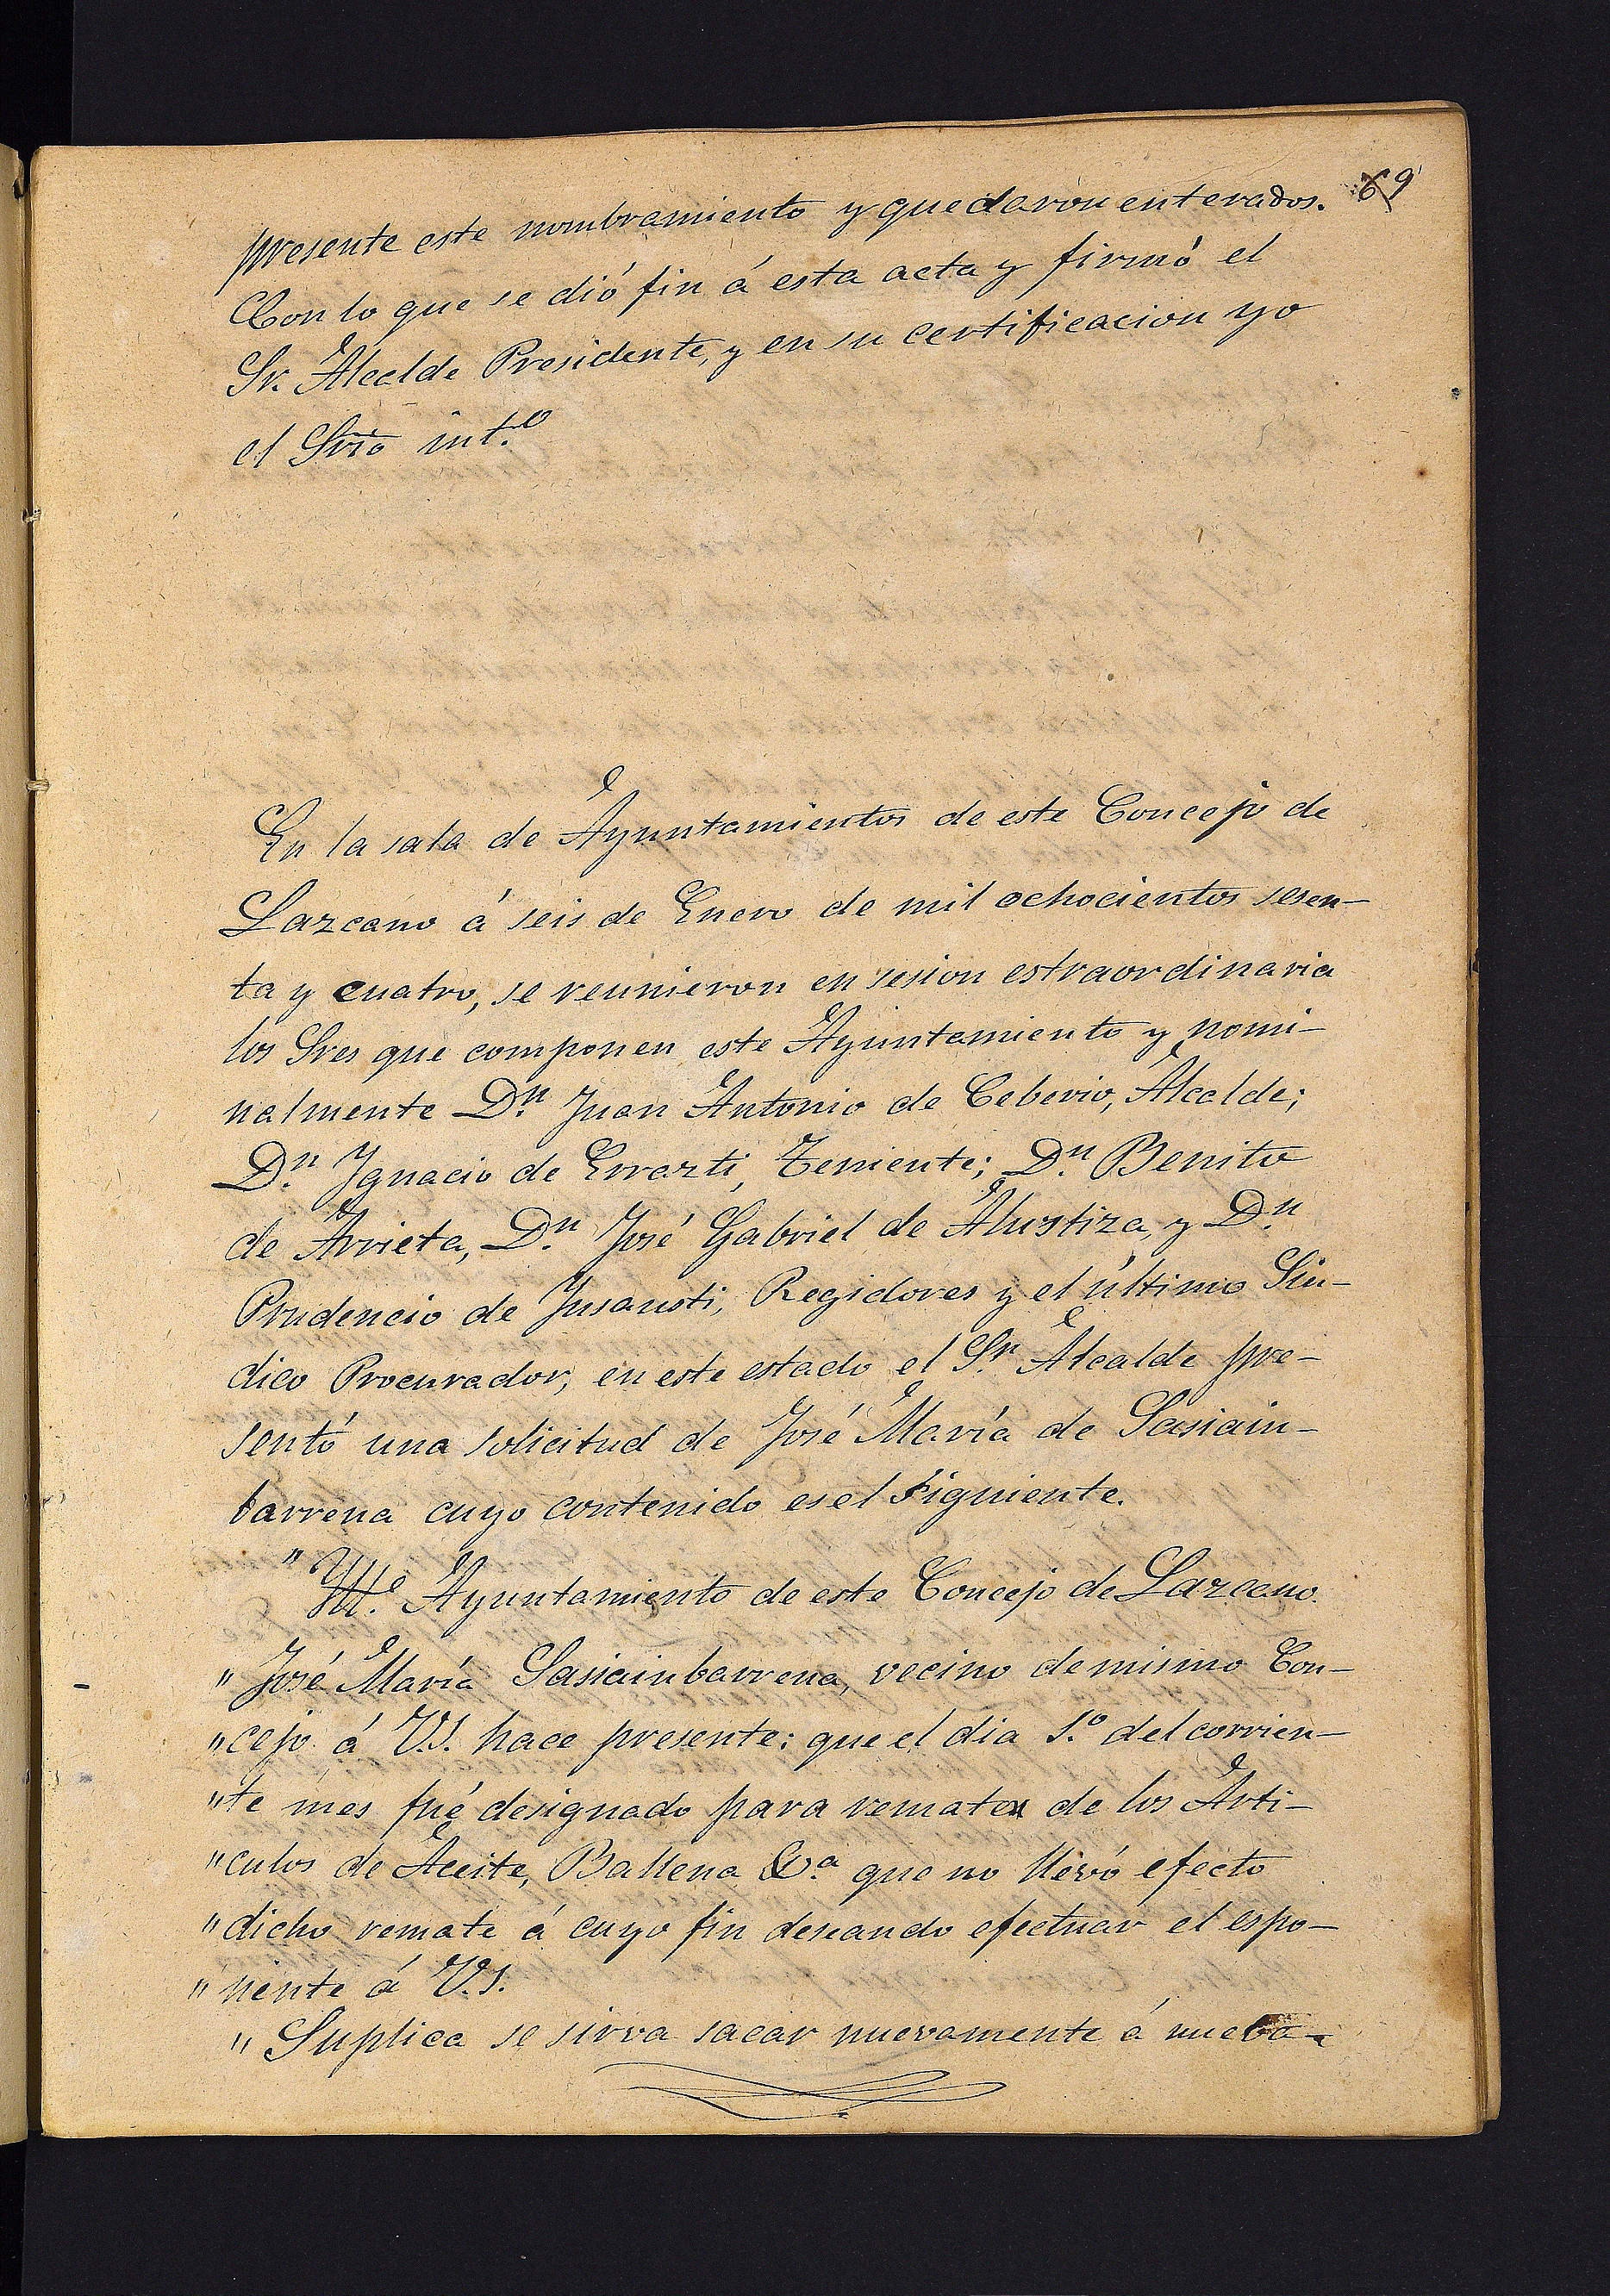 69
presente este nombramiento y quedaron enterados.
Con lo que se dió fin á esta acta y firmó el
Sr. Alcalde Presidente, y en su certificacion yo
el Srio int.o
En la sala de Ayuntamientos de este Concejo de
Lazcano á seis de Enero de mil ochocientos sesen-
ta y cuatro, se reunieron en sesion estraordinaria
los Sres que componen este Ayuntamiento y nomi-
nalmente D.n Juan Antonio de Ceberio, Alcalde;
D.n Ygnacio de Errazti, Teniente; D.n Benito
de Arrieta, D.n José Gabriel de Alustiza, y D.n
Prudencio de Ynsausti, Regidores y el último Sín-
dico Procurador, en este estado el S.r Alcalde pre-
sentó una solicitud de José María de Sasiain-
barrena cuyo contenido es el siguiente.
" Yltt.e Ayuntamiento de este Concejo de Lazcano.
" José María Sasiainbarrena, vecino de mismo Con-
" cejo á V.S. hace presente: que el dia 1.o del corrien-
" te mes fué designado para remate de los Arti-
" culos de Aceite, Ballena &a. que no llevó efecto
" dicho remate á cuyo fin deseando efectuar el espo-
" nente á V.S.
" Suplica se sirva sacar nuevamente á nueba